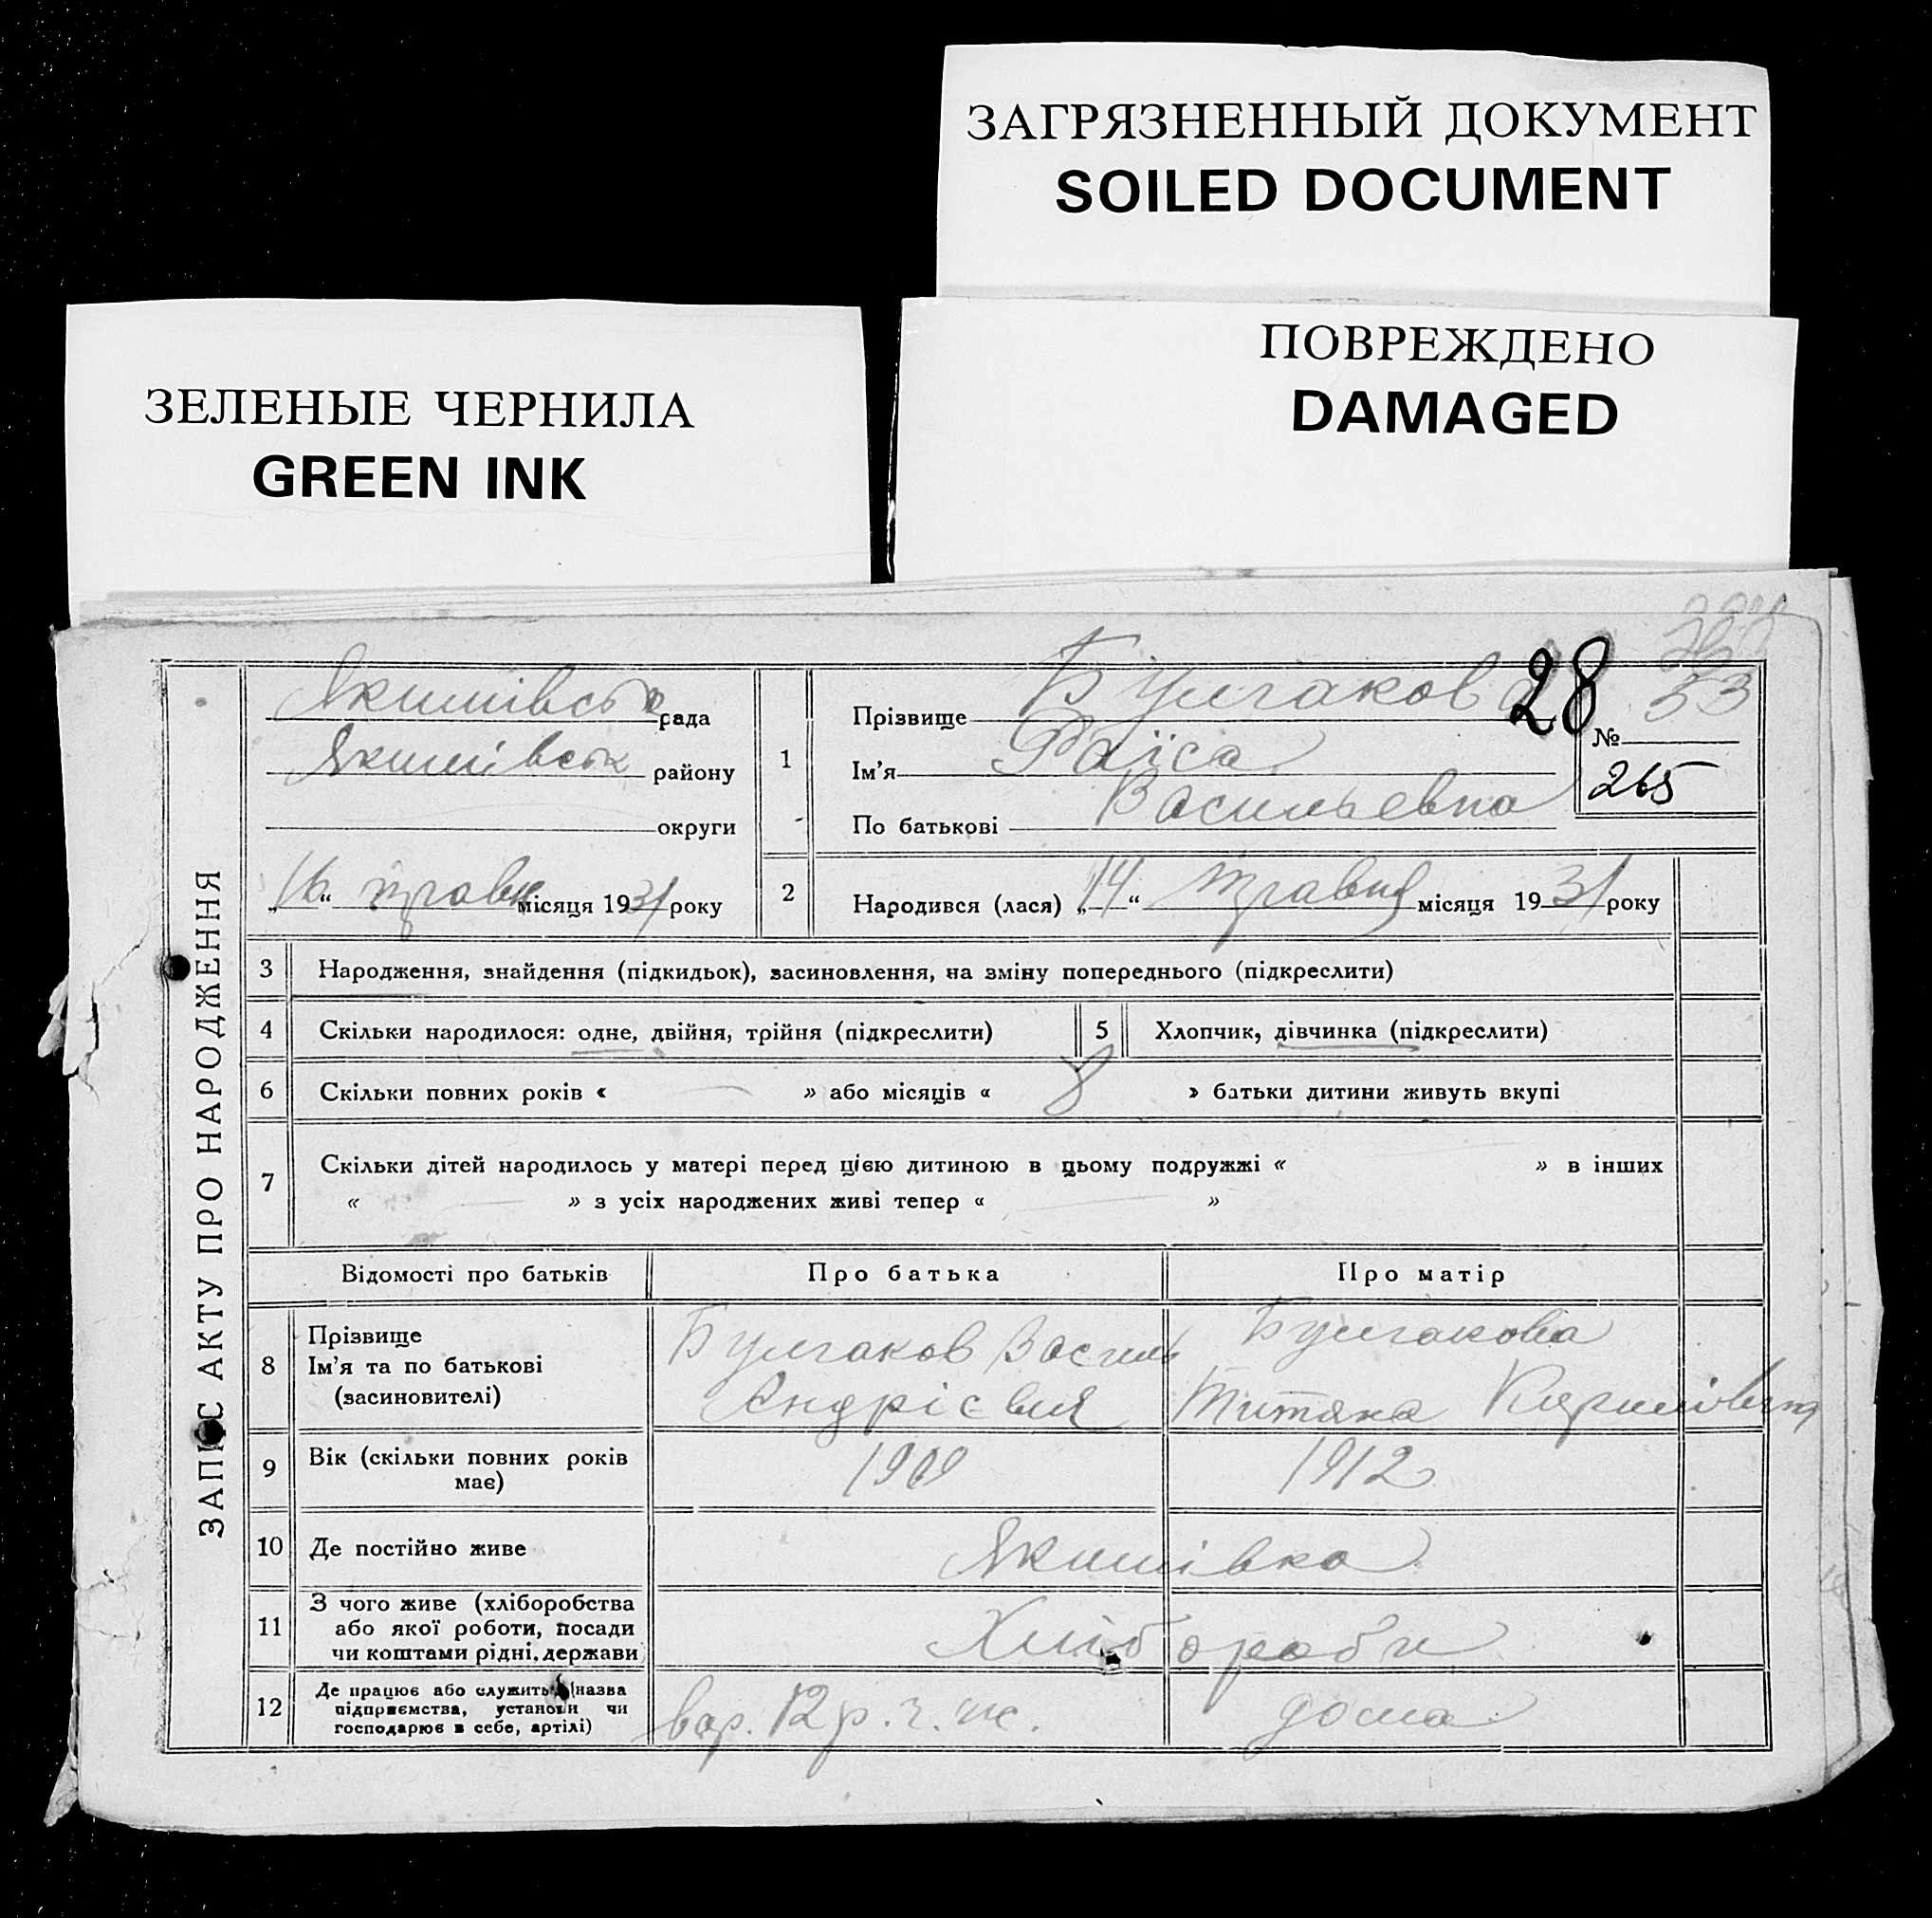 ЗАГРЯЗНЕННЫЙ ДОКУМЕНТ
SOILED DOCUMENT
ПОВРЕЖДЕНО
DAMAGED
ЗЕЛЕНЫЕ ЧЕРНИЛА
GREEN INK
ЗАПИС АКТУ ПРО НАРОДЖЕННЯ
Якимівська рада
Якимівськ району
округи
„16“ травня місяця 1931 року
1
Прізвище Булгакова
28
№ 53
Ім'я Раїса
265
По батькові Васильевна
2 Народився (лася) „14“ травня місяця 1931 року
3 Народження, знайдення (підкидьок), засиновлення, на зміну попереднього (підкреслити)
4 Скільки народилося: одне, двійня, трійня (підкреслити) 5 Хлопчик, дівчинка (підкреслити)
6 Скільки повних років « — » або місяців « 8 » батьки дитини живуть вкупі
7 Скільки дітей народилось у матері перед цією дитиною в цьому подружжі « » в інших
« — » з усіх народжених живі тепер « — »
Відомості про батьків Про батька Про матір
8 Прізвище
Ім'я та по батькові
(засиновителі)
Булгаков Василь
Андрієвич
Булгакова
Титяна
9 Вік (скільки повних років
має)
1909 1912
10 Де постійно живе Якимівка
11 З чого живе (хліборобства
або якої роботи, посади
чи коштами рідні, держави
Хлібороби
12 Де працює або служить (назва
підприємства, установи чи
господарює в себе, артілі)
12 р. дома